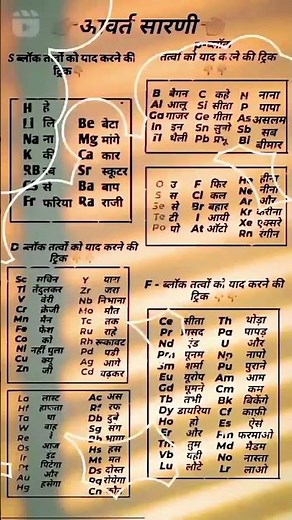 आवर्त सारणी
S ब्लॉक तत्वों को याद करने की
ट्रिक
H हे
Li लि
Na ना
K की
RB रब
से
Fr फरिया
Be बेटा
Mg मांगे
Ca कार
Sr स्कूटर
Ba बाप
Ra राजी
P-ब्लॉक
तत्वों को याद करने की ट्रिक
B बैगन
Al आलू
Ga गाजर
In इन
थैली
C कहे
Si सीता
Ge गीता
Sn सुनो
Pb
N नाना
P पापा
As असलम
Sb सब
Bi बीमार
O उ
S स
Se से
Te टी
Po पो
F फिर
Cl कल
Br बाहर
I आयी
At आंटी
He हीना
Ne नीना
Ar और
Kr करीना
Xe एक्सरे
Rn रंगीन
D ब्लॉक तत्वों को याद करने की
ट्रिक
Sc सचिन
Ti तेंदुलकर
V वेरी
Cr क्रेजी
Mn मैन
Fe फेश
Co को
Ni नहीं धुला
Cu क्यू
Zn जी
Y यान
Zr जरा
Nb निभाना
Mo मौत
Tc तक
Ru राहें
Rh रुकावट
Pd पडी
Ag आगे
Cd चढ़कर
La लास्ट
Hf हाफता
Ta था
W वाह
Re रे
Os आज
Ir
Pt पिटेगा
Au और
Hg हसेगा
Ac अस
Rf रफ
Db डूबे
Sg संग
भाग
Hs हस
Mt मत
Ds दोस्त
Rg रोयेगा
Cn कौन
F - ब्लॉक तत्वों को याद करने की
ट्रिक
Ce सीता
Pr
Nd
Pm पूनम
Sm शर्मा
Eu यूरोप
Gd घूमने
Tb तभी
Dy डायरिया
Ho हो
Er और
Tm तुम
Yb यही
Lu लोटे
Th थोड़ा
Pa पापड़
U और
Np नापो
Pu पुराने
Am आम
Cm कम
Bk बिकेंगे
Cf काफ़ी
Es ऐसे
Fm फरमाओ
Md मैडम
No नास्ता
Lr लाओ